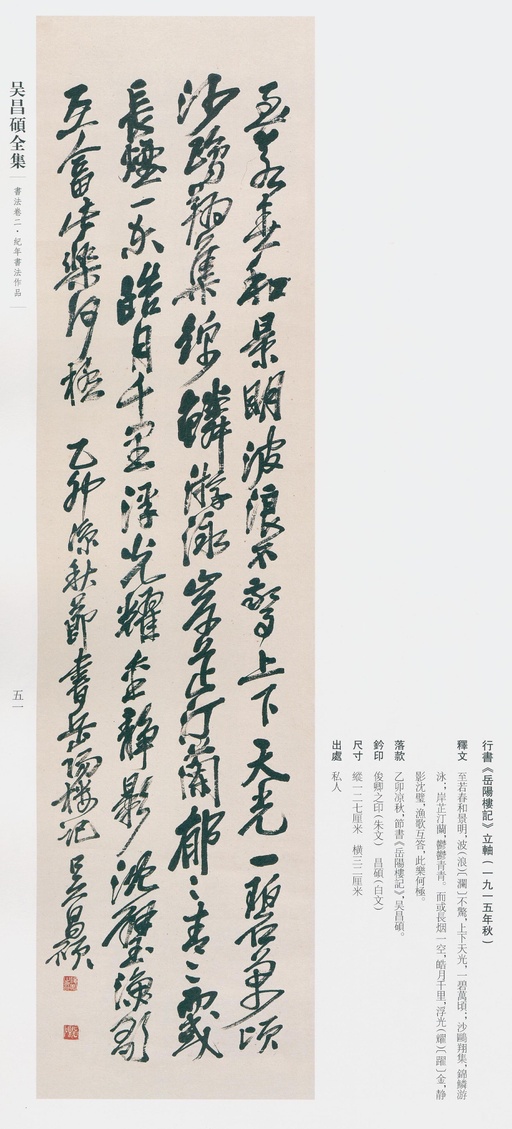 行書《岳陽樓記》立軸（一九一五年秋）
釋文 至若春和景明，波（浪）〔瀾〕不驚，上下天光，一碧萬頃；沙鷗翔集，錦鱗游
泳；岸芷汀蘭，鬱鬱青青。而或長烟一空，皓月千里，浮光（耀）〔躍〕金，静
影沈璧，漁歌互答，此樂何極。
落款 乙卯凉秋，節書《岳陽樓記》，吴昌碩。
鈐印 俊卿之印（朱文） 昌碩（白文）
尺寸 縱一二七厘米 横三二厘米
出處 私人
至若春和景明波浪不驚上下天光一碧萬頃
沙鷗翔集錦鱗游泳岸芷汀蘭郁〻青〻而或
長煙一空皓月千里浮光耀金靜影沈璧漁歌
互答此樂何極 乙卯涼秋節書岳陽樓記 吳昌碩
吴昌碩全集
書法卷二·紀年書法作品
五一